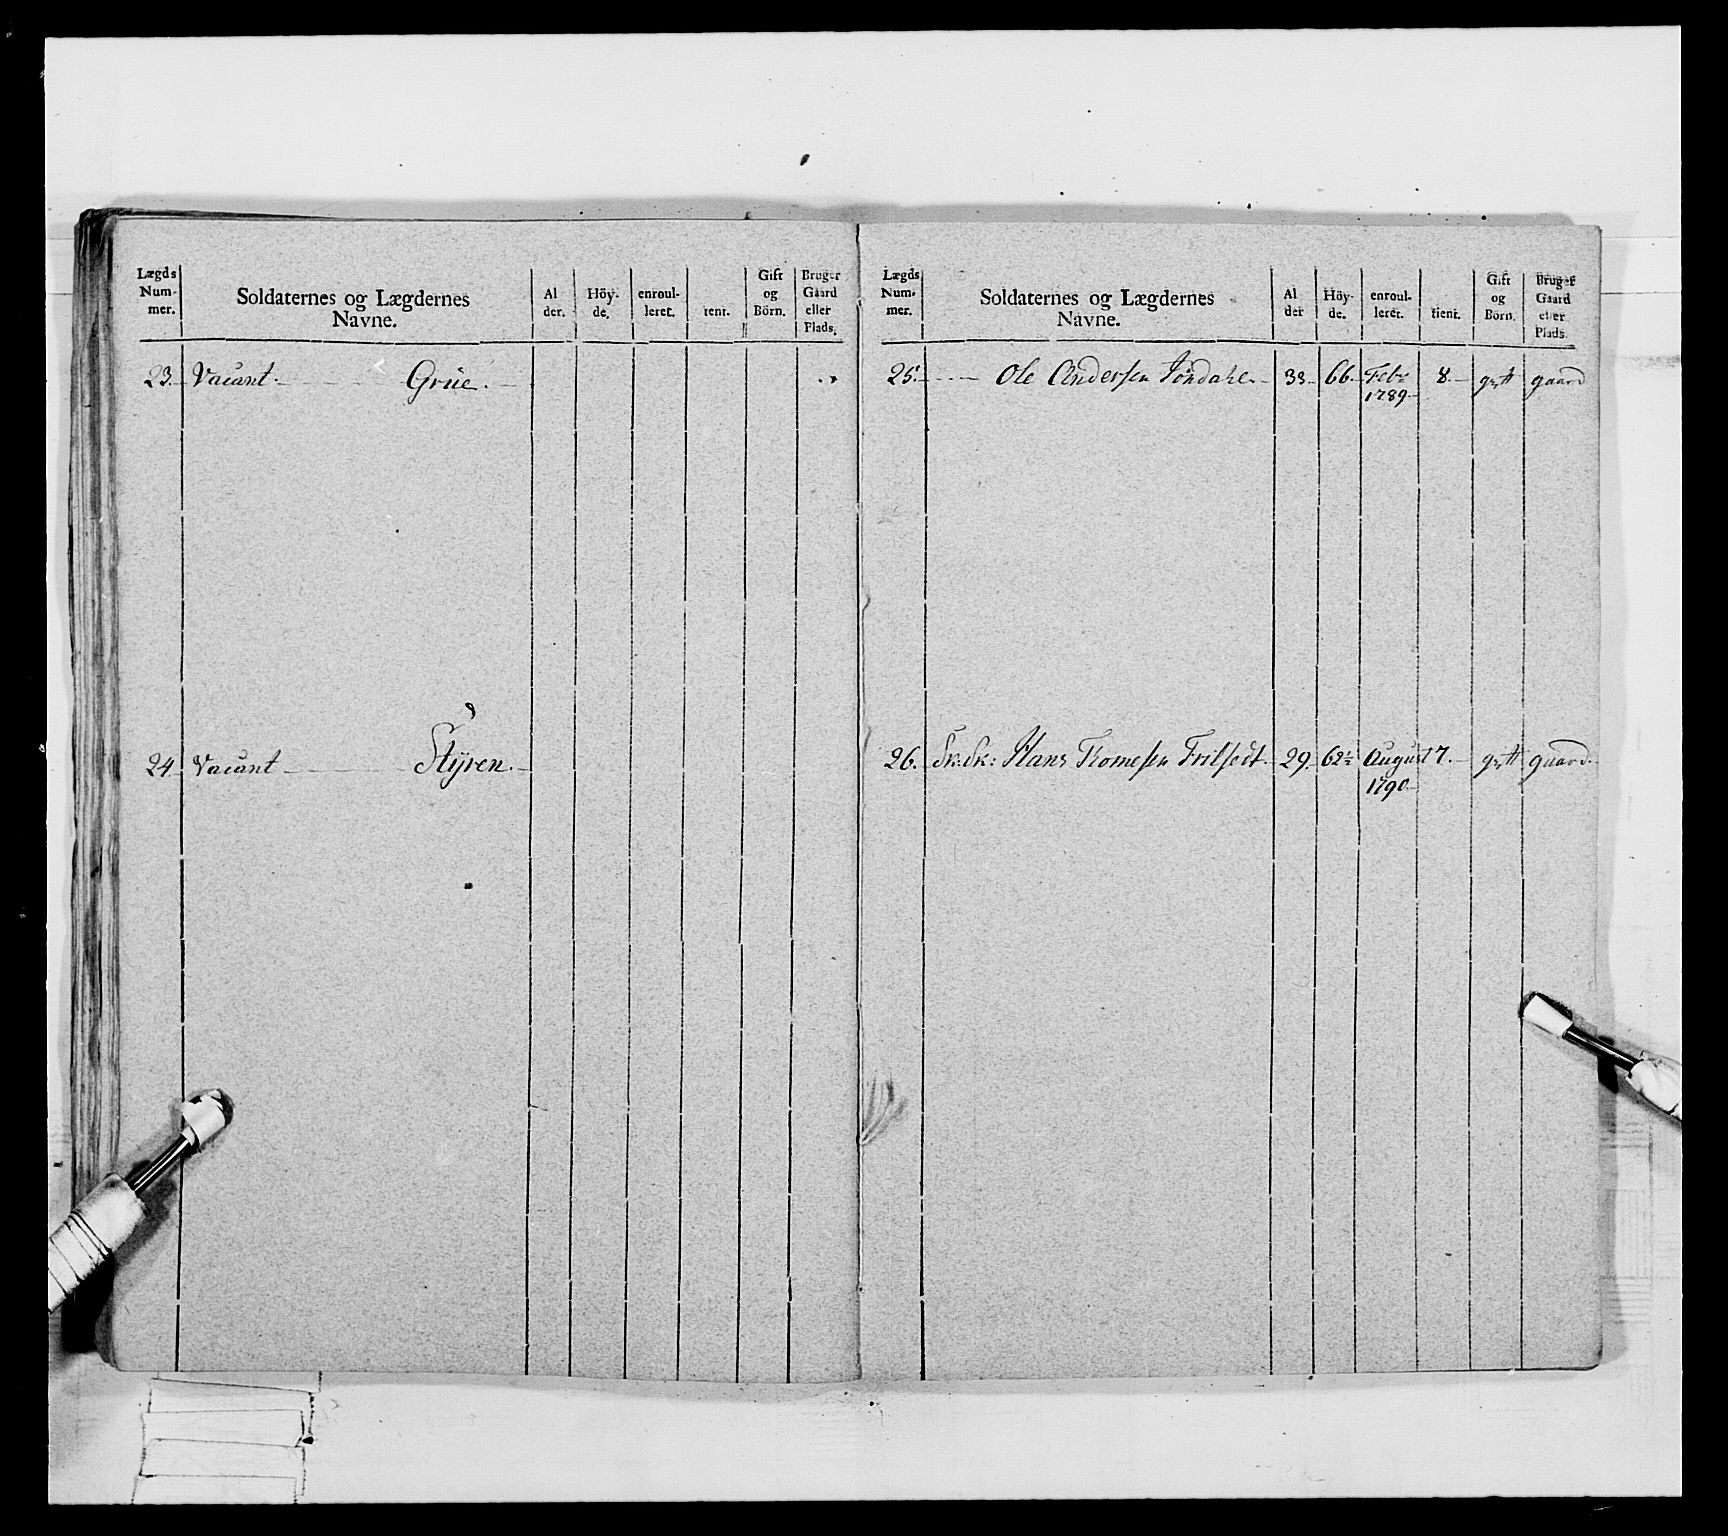 Lægds Num- mer.
Soldaternes og Lægdernes Navne.
Al der.
Höy- de.
enroul- leret.
tent.
Gift og Börn.
Bruger Gaard eller Plads.
23. Vacant. Grüe.
24. Vacant Styren.
Lægds Num- mer.
Soldaternes og Lægdernes Navne.
Al der
Höy- de.
enroul- leret.
tient.
Gift og Börn.
Bruger Gaard eller Plads.
25. Ole Andersen 33 66 Febr 8. gift gaard
1789
26. Hans 29. 62½ August 7. gift gaard.
1790